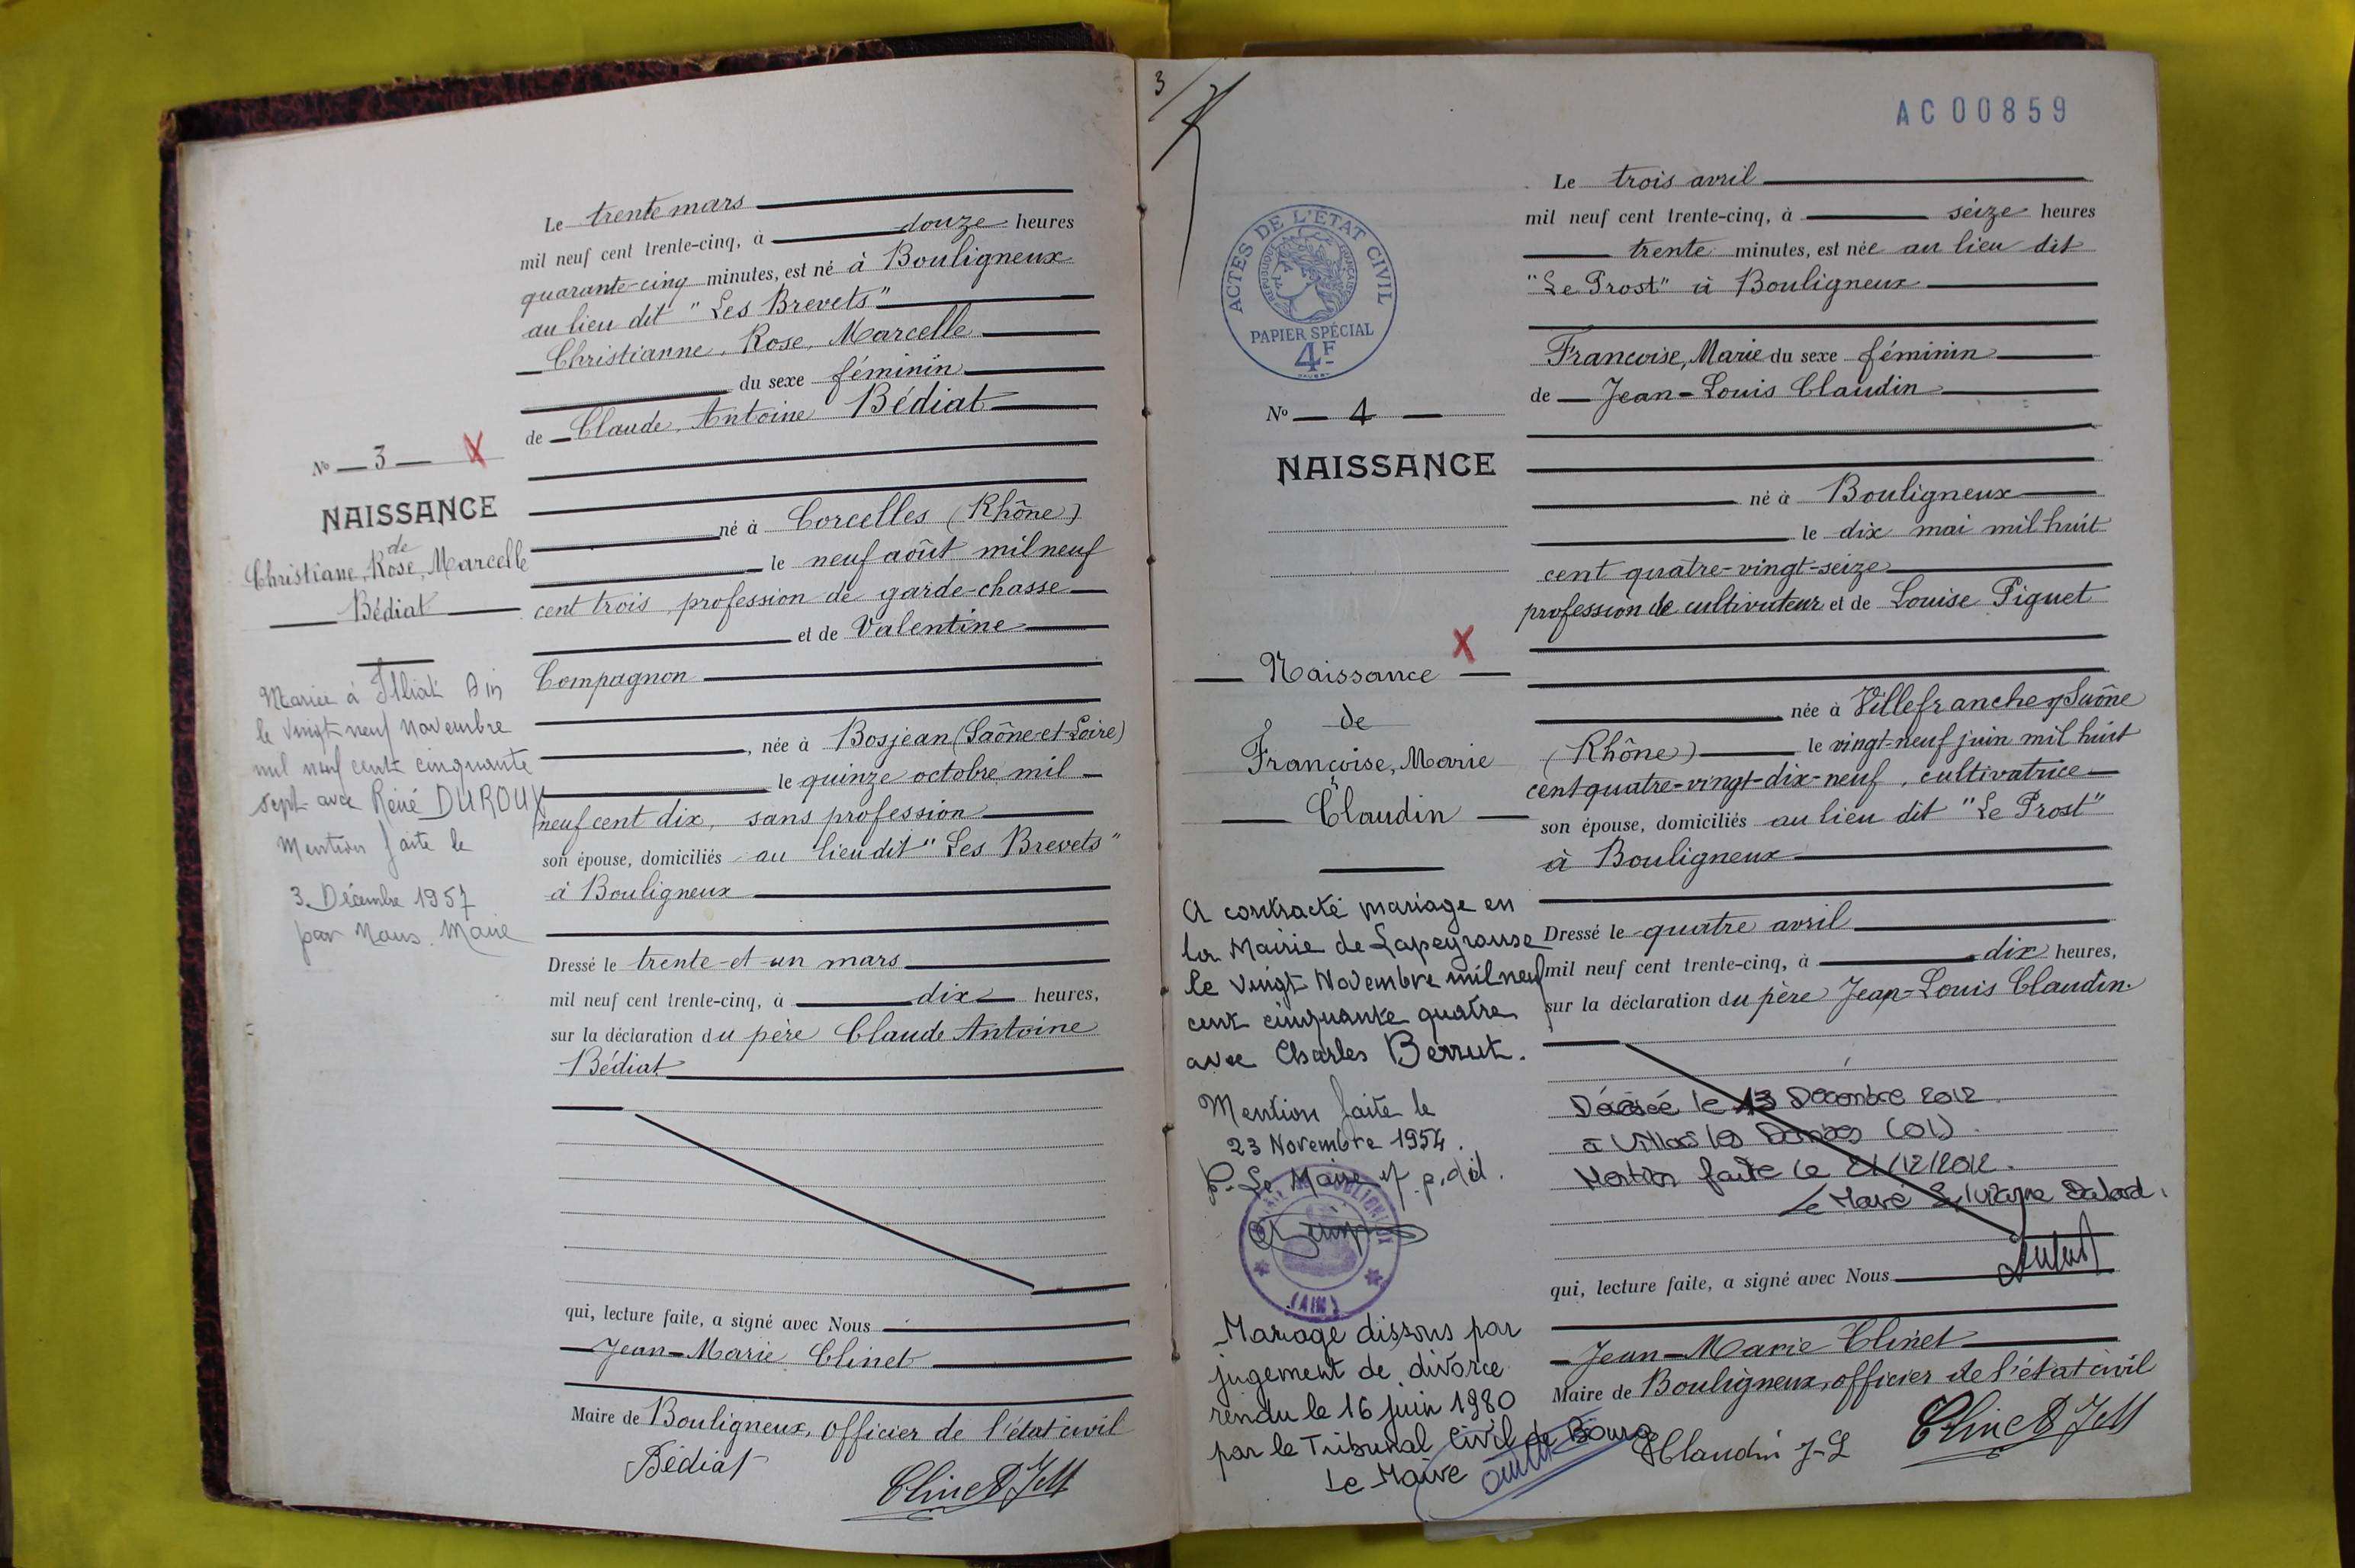 Le trente mars
mil neuf cent trente-cinq, à douze heures
quarante-cinq minutes, est né à Bouligneux
au lieu dit "Les Brevets"
Christianne, Rose, Marcelle
du sexe féminin
de Claude, Antoine Bédiat
né à Corcelles (Rhône)
le neuf août mil neuf
cent trois, profession de garde-chasse
et de Valentine
Compagnon
, née à Bosjean (Saône-et-Loire)
le quinze octobre mil
neuf cent dix, sans profession
son épouse, domiciliés au lieu dit "Les Brevets"
à Bouligneux
Dressé le trente-et-un mars
mil neuf cent trente-cinq, à dix heures,
sur la déclaration du père Claude Antoine
Bédiat
qui, lecture faite, a signé avec Nous
Jean-Marie Clinet
Maire de Bouligneux, officier de l'état civil
Bédiat
Clinet J M
No 3 X
NAISSANCE
de
Christiane, Rose, Marcelle
Bédiat
Mariée à Illiat Ain
le vingt neuf novembre
mil neuf cent cinquante
sept avec René DUROUX
Mention faite le
3 Décembre 1957
par Nous. Maire
3
AC 00859
ACTES DE L'ÉTAT CIVIL
RÉPUBLIQUE FRANÇAISE
PAPIER SPÉCIAL
4F
No 4
NAISSANCE
X
Naissance
de
Françoise, Marie
Claudin
A contracté mariage en
la Mairie de Lapeyrouse
le vingt Novembre mil neuf
cent cinquante quatre
avec Charles Berrut.
Mention faite le
23 Novembre 1954.
P. Le Maire p. dél.
(AIN)
Mariage dissous par
jugement de divorce
rendu le 16 juin 1980
par le Tribunal Civil de Bourg
Le Maire
Le trois avril
mil neuf cent trente-cinq, à seize heures
trente minutes, est née au lieu dit
"Le Prost" à Bouligneux
Françoise, Marie du sexe féminin
de Jean-Louis Claudin
né à Bouligneux
le dix mai mil huit
cent quatre-vingt-seize
profession de cultivateur et de Louise Piguet
née à Villefranche s/Saône
(Rhône) le vingt-neuf juin mil huit
cent quatre-vingt-dix-neuf, cultivatrice
son épouse, domiciliés au lieu dit "Le Prost"
à Bouligneux
Dressé le quatre avril
mil neuf cent trente-cinq, à dix heures,
sur la déclaration du père Jean-Louis Claudin.
Décédée le 13 Décembre 2012
à Villars les Dombes (01).
Mention faite le 21/12/2012.
Le Maire
qui, lecture faite, a signé avec Nous
Jean-Marie Clinet
Maire de Bouligneux, officier de l'état civil
Claudin J-L
Clinet J M